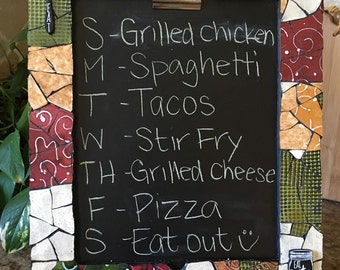 S - Grilled chicken
M - Spaghetti
T - Tacos
W - Stir Fry
TH - Grilled Cheese
F - Pizza
S - Eat out